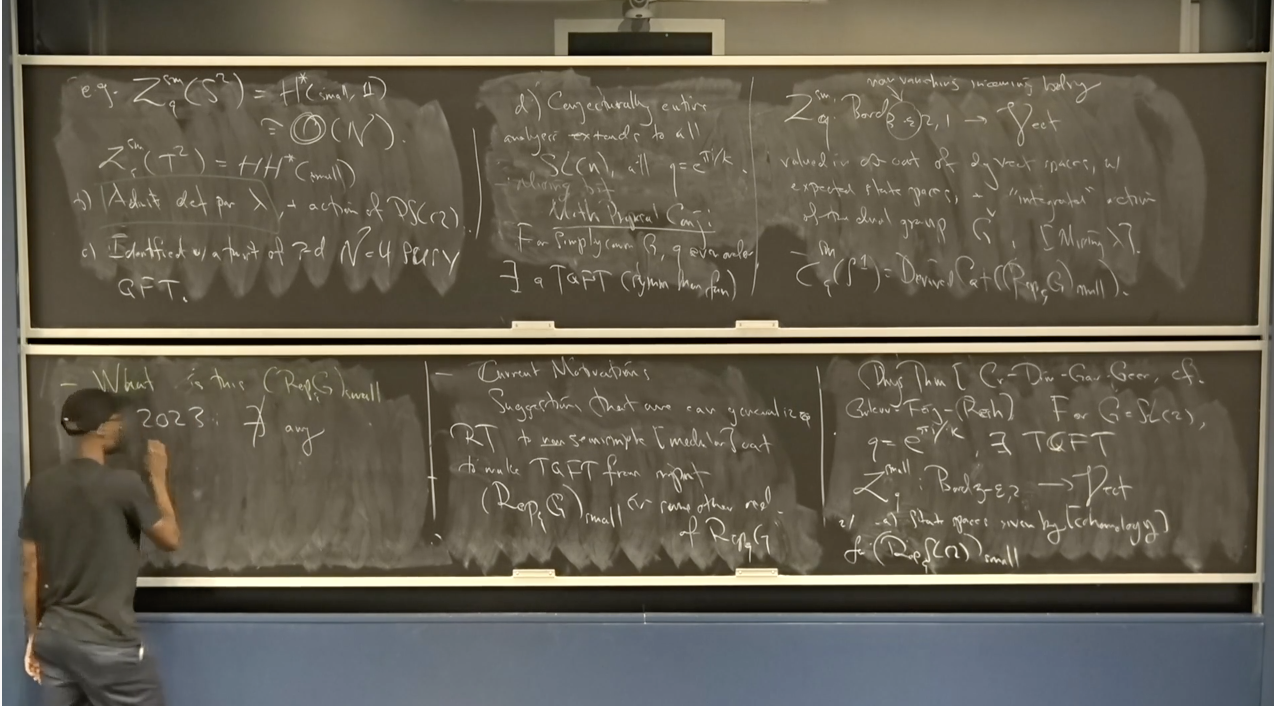 e.g. Z_q^{sm}(S^2) = H^*(small, 1)
≅ O(N).
Z_q^{sm}(T^2) = HH^*(small)
b) Admit def par λ, + action of
c) Identified w/ a twist of 3d N=4 SUSY
QFT.
d) Conjecturally entire
analysis extends to all
SL(n), all q = e^{πi/k}.
Math Physical Conj:
For simply conn G, q even order
∃ a TQFT
Z_q^{sm}: Bord_{3-ε,2,1} → Vect
valued in ∞-cat of dg vect spaces, w/
expected state spaces, + "integrated" action
of the dual group Ǧ. [Missing λ].
(S^1) = Derived Cat((Rep_q G)_{small}).
- What is this (Rep_q G)_{small}
2023: ∄ any
- Current Motivations
Suggestions that one can generalize
RT to nonsemisimple [modular] cat
to make TQFT from input
(Rep_q G)_{small} or some other
of Rep_q G
Phys Thm [Cr-Dim-Gar-Geer, cf.
] For G = SL(2),
q = e^{πi/k}, ∃ TQFT
Z_q^{small}: Bord_{3-ε,2} → Vect
w/ a) State spaces given by [cohomology]
for (Rep_q SL(2))_{small}